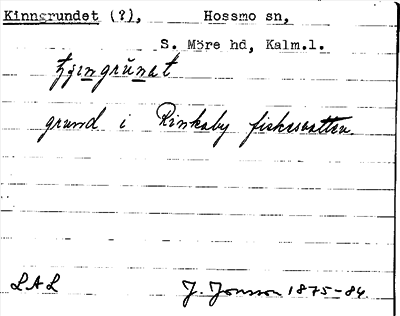 Kinngrundet (?), Hossmo sn,
S. Möre hd, Kalm.l.
grund i Rinkaby fiskevatten
LAL J. Jonsson 1875-84